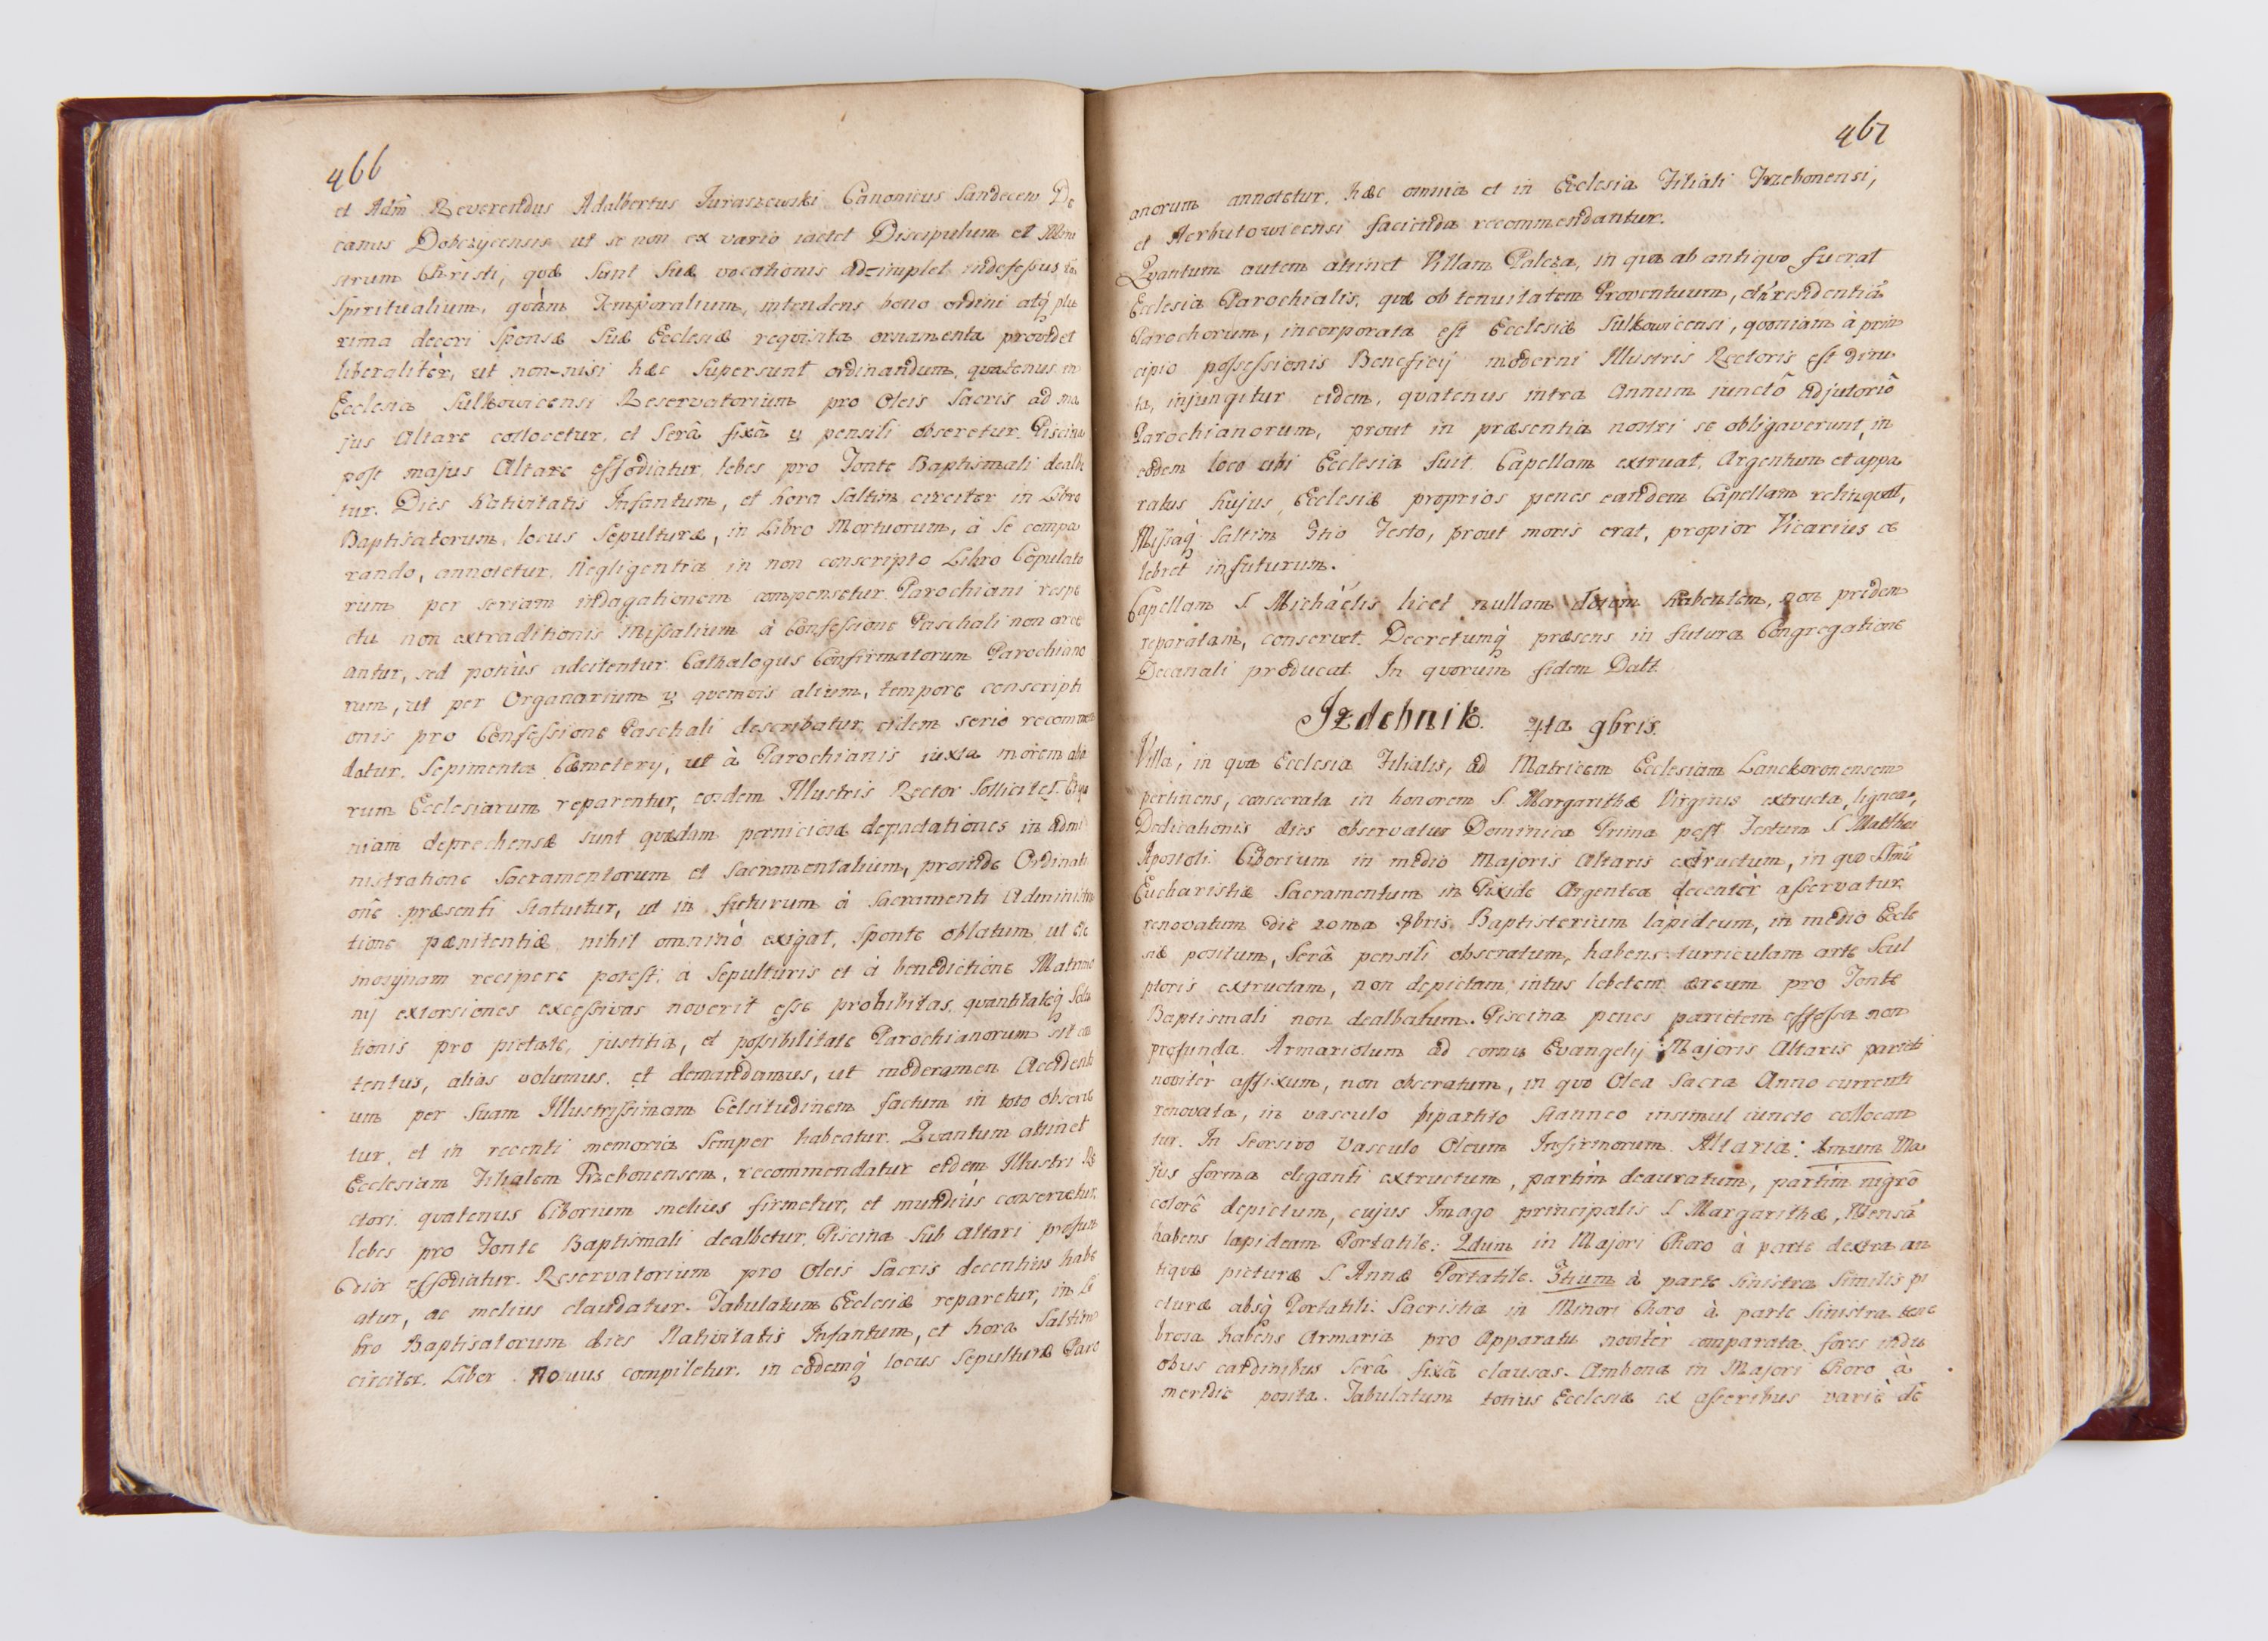 466
et Adm̃ Reverendus Adalbertus Juraszewski Canonicus Sandecen De
canus Dobczycensis ut se non ex vario iactet Discipulum et Mini
strum Christi, quæ sunt suæ vocationis adimplet indefessus, tam
Spiritualium, quàm Temporalium, intendens bono ordini atq̃ plu
rima decori Sponsæ suæ Ecclesiæ requisita ornamenta providet
liberalitèr, ut non-nisi hæc supersunt ordinandum, quatenus in
Ecclesia Sulkowicensi Reservatorium pro Oleis Sacris ad ma
jus Altare collocetur, et Serâ fixâ pensili obseretur. Piscina
post majus Altare effodiatur, lebes pro Fonte Baptismali dealbe
tur. Dies Nativitatis Infantum, et hora saltim circiter in Libro
Baptisatorum, locus Sepulturæ, in Libro Mortuorum, à se compa
rando, annotetur. Negligentia in non conscripto Libro Copulato
rum per seriam indagationem compensetur. Parochiani respe
ctu non extraditionis Missalium à Confessione Paschali non arce
antur, sed potiùs adcitentur. Cathalogus Confirmatorum Parochiano
rum, ut per Organarium quemvis alium, tempore conscripti
onis pro Confessione Paschali describatur, eidem serio recommen
datur. Sepimenta Cæmeterij, ut à Parochianis iuxta morem alia
rum Ecclesiarum reparentur, eosdem Illustris Rector sollicitet.
niam deprehensæ sunt quædam perniciosæ depactationes in admi
nistratione Sacramentorum et Sacramentalium, proinde Ordinati
onẽ præsenti statuitur, ut in futurum à Sacramenti Administra
tione pænitentiæ nihil omninò exigat, sponte oblatum ut ele
mosynam recipere potest; à Sepulturis et à benedictione Matrimo
nij extorsiones excessivas noverit esse prohibitas, quantitateq̃ Solu
tionis pro pietate, justitia, et possibilitate Parochianorum sit con
tentus, alias volumus, et demandamus, ut moderamen Accidenti
um per Suam Illustrissimam Celsitudinem factum in toto observe
tur, et in recenti memoria semper habeatur. Quantum attinet
Ecclesiam Filialem Trzebonensem, recommendatur eidem Illustri Re
ctori, quatenus Ciborium melius firmetur, et mundiùs conservetur,
lebes pro Fonte Baptismali dealbetur. Piscina sub altari profun
dior effodiatur. Reservatorium pro Oleis Sacris decentius habe
atur, ac melius claudatur. Tabulatum Ecclesiæ reparetur, in Li
bro Baptisatorum dies Nativitatis Infantum, et hora saltim
circiter. Liber Novus compiletur, in eodemq̃ locus Sepulturæ Paro
467
anorum annotetur, hæc omnia et in Ecclesia Filiali Trzebonensi,
et Herbutowicensi facienda recommendantur.
Quantum autem attinet Villam Palcza, in qua ab antiquo fuerat
Ecclesia Parochialis, quæ ob tenuitatem Proventuum, residentiã
Parochorum, incorporata est Ecclesiæ Sulkowicensi, quoniam à prin
cipio possessionis Beneficij moderni Illustris Rectoris est diru
ta, injungitur eidem, quatenus intra Annum iunctô adjutoriô
Parochianorum, prout in præsentia nostri se obligaverunt, in
eodem loco ubi Ecclesia fuit, Capellam extruat, Argentum et appa
ratus hujus Ecclesiæ proprios penes eandem Capellam relinquat,
Missaq̃ saltim 3tio Festo, prout moris erat, propior Vicarius ce
lebret in futurum.
Capellam S. Michaëlis licet nullam dotem habentem, non pridem
reparatam, conservet. Decretumq̃ præsens in futura Congregatione
Decanali producat. In quorum fidem Datt.
Jzdebnik. 4ta 9bris.
Villa, in qua Ecclesia Filialis, ad Matricem Ecclesiam Lanckoronensem
pertinens, consecrata in honorem S. Margarithæ Virginis extructa, lignea,
Dedicationis dies observatur Dominica Prima post Festum S. Matthæi
Apostoli. Ciborium in medio Majoris Altaris extructum, in quo SSmũ
Eucharistiæ Sacramentum in Pixide Argentea decentèr asservatur,
renovatum die 20ma 8bris. Baptisterium lapideum, in medio Eccle
siæ positum, Serâ pensili obseratum, habens turriculam arte Scul
ptoris extructam, non depictam, intus lebetem æreum pro Fonte
Baptismali non dealbatum. Piscina penes parietem effossa non
profunda. Armariolum ad cornu Evangelij Majoris Altaris parieti
novitèr affixum, non obseratum, in quo Olea Sacra Anno currenti
renovata, in vasculo bipartito stanneo insimul iuncto collocan
tur. In Seorsivo Vasculo Oleum Infirmorum. Altaria: 1mum Ma
jus forma eleganti extructum, partìm deauratum, partìm nigrô
colorê depictum, cujus Imago principalis S. Margarithæ, Mensã
habens lapideam Portatile. 2dum in Majori Choro à parte dextra an
tiquæ picturæ S. Annæ Portatile. 3tium à parte sinistra similis pi
cturæ absq̃ Portatili. Sacristia in Minori Choro à parte sinistra tene
brosa habens Armaria pro Apparatu novitèr comparata, fores in du
obus cardinibus serâ fixâ clausas. Ambona in Majori Choro à
meridie posita. Tabulatum totius Ecclesiæ ex asseribus variè de